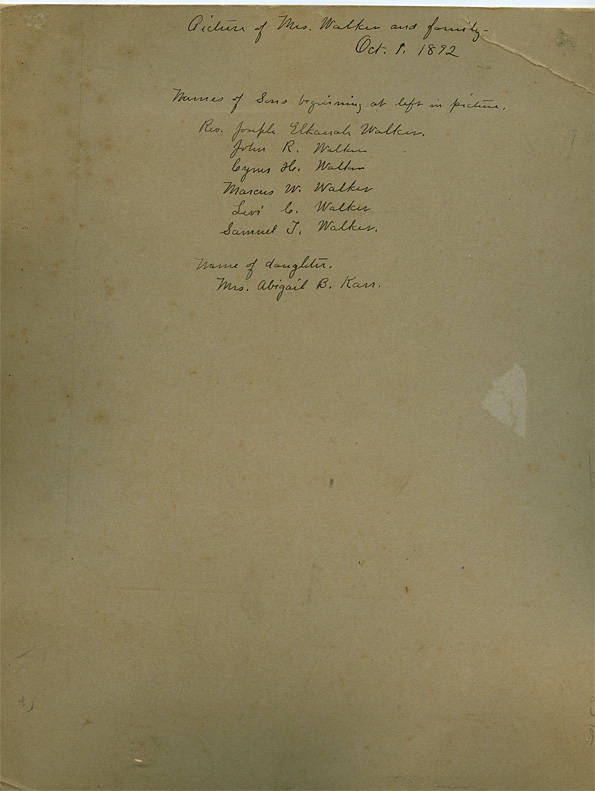 Picture of Mrs. Walker and family-
Oct. 1, 1892
Names of Sons beginning at left in picture.
Rev. Joseph Elkanah Walker.
John R. Walker
Cyrus H. Walker
Marcus W. Walker
Levi C. Walker
Samuel T. Walker.
Name of daughter.
Mrs. Abigail B. Karr.